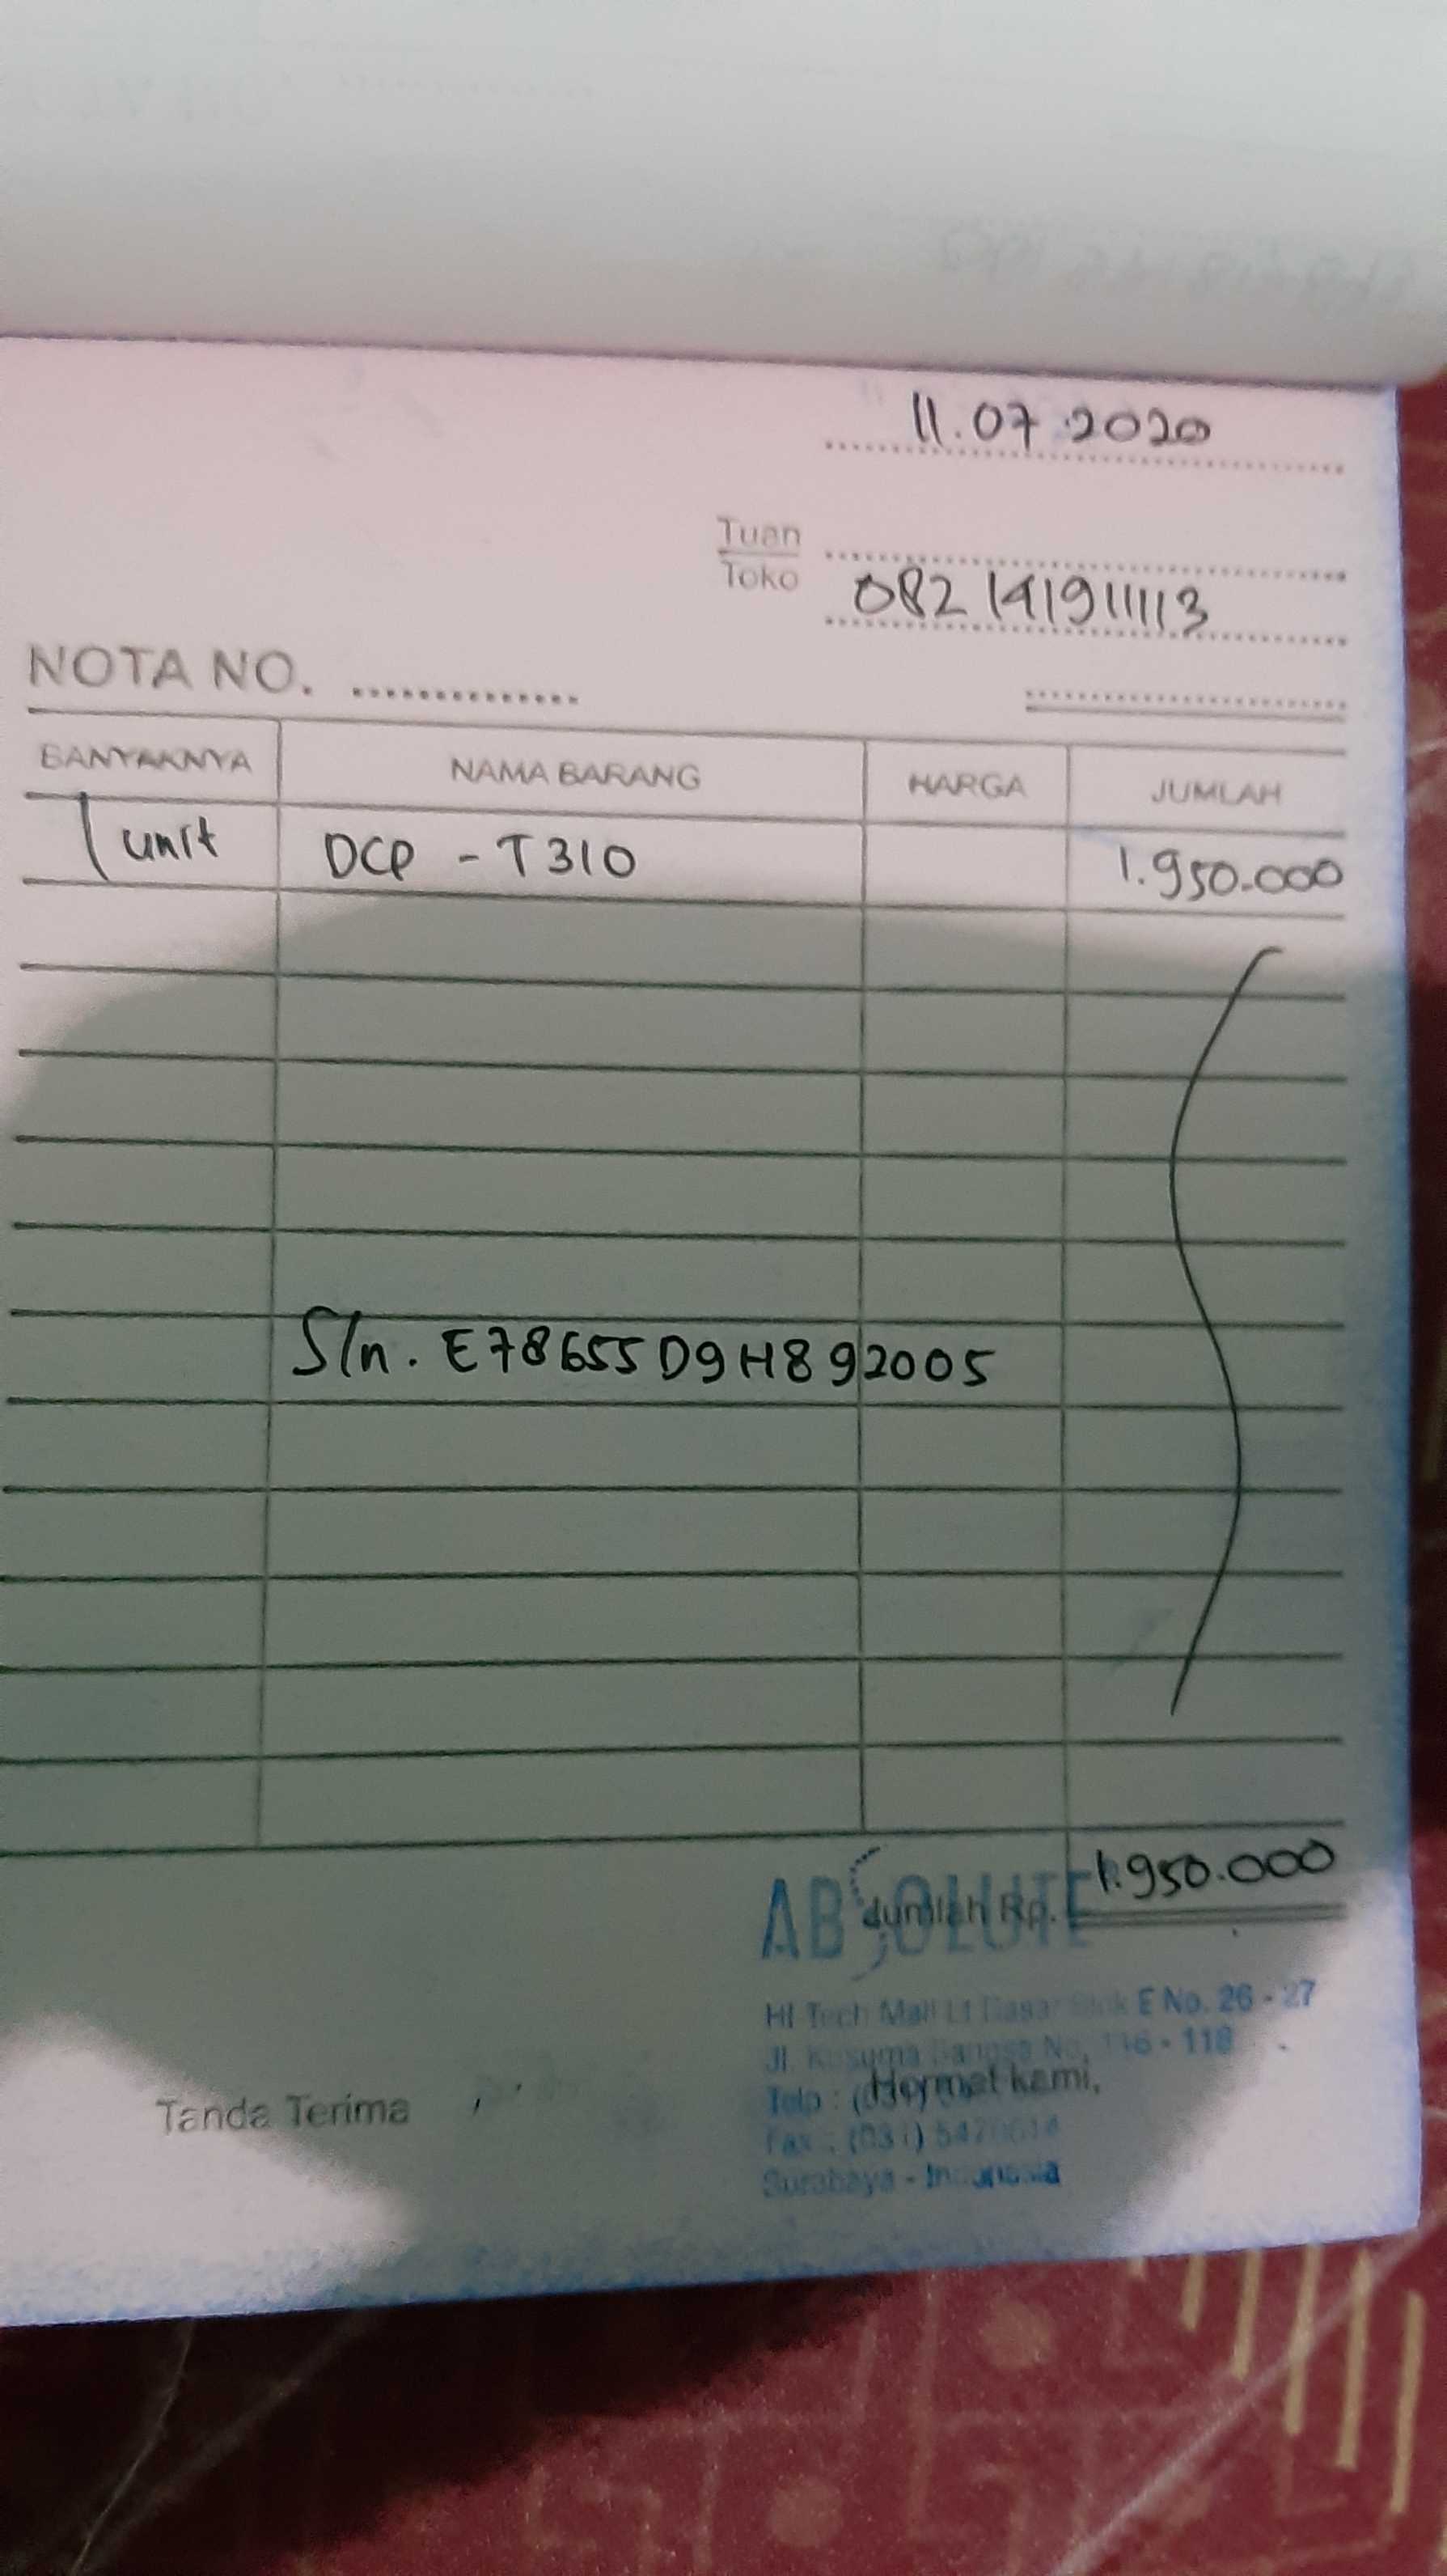 11.07.2020
Tuan
Toko 082141911113
NOTA NO. ..............
BANYAKNYA NAMA BARANG HARGA JUMLAH
1 unit DCP - T310 1.950.000
S/n. E78655D9H892005
Jumlah Rp. 1.950.000
ABSOLUTE
Hi Tech Mall Lt Dasar Blok E No. 26 - 27
Jl. Kusuma Bangsa No. 116 - 118
Telp : (031)
Hormat kami,
Tanda Terima
Fax : (031)
Surabaya - Indonesia